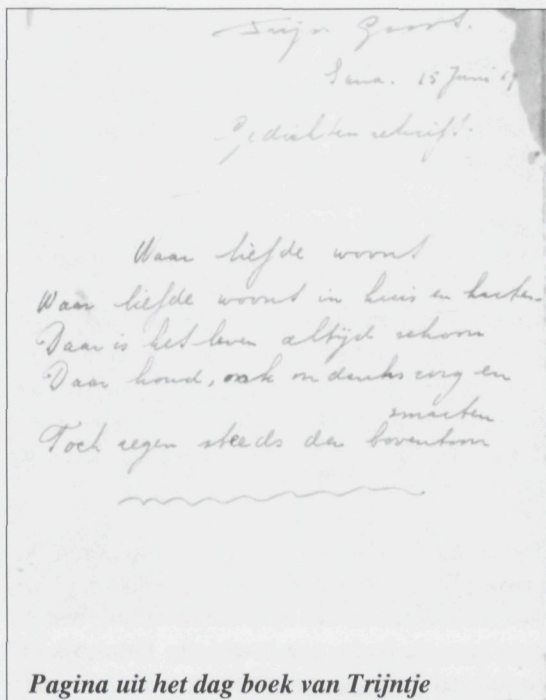 Trijn Groot.
15 Juni
Gedichten schrift.
Waar liefde woont
Waar liefde woont in huis en harten
Daar is het leven altijd schoon
Daar houd, ook ondanks zorg en
smarten
Toch zegen steeds den boventoon
Pagina uit het dag boek van Trijntje